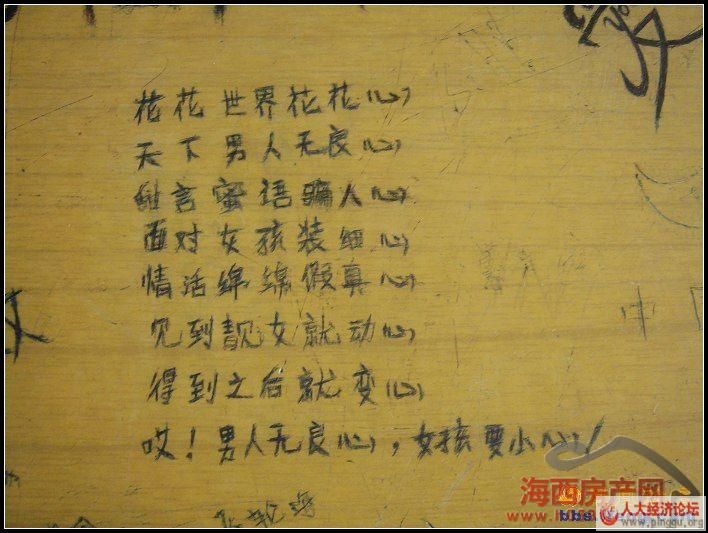 花花世界花花心
天下男人无良心
甜言蜜语骗人心
面对女孩装细心
情话绵绵假真心
见到靓女就动心
得到之后就变心
哎！男人无良心，女孩要小心！
海西房产网
人大经济论坛
www.pinggu.org